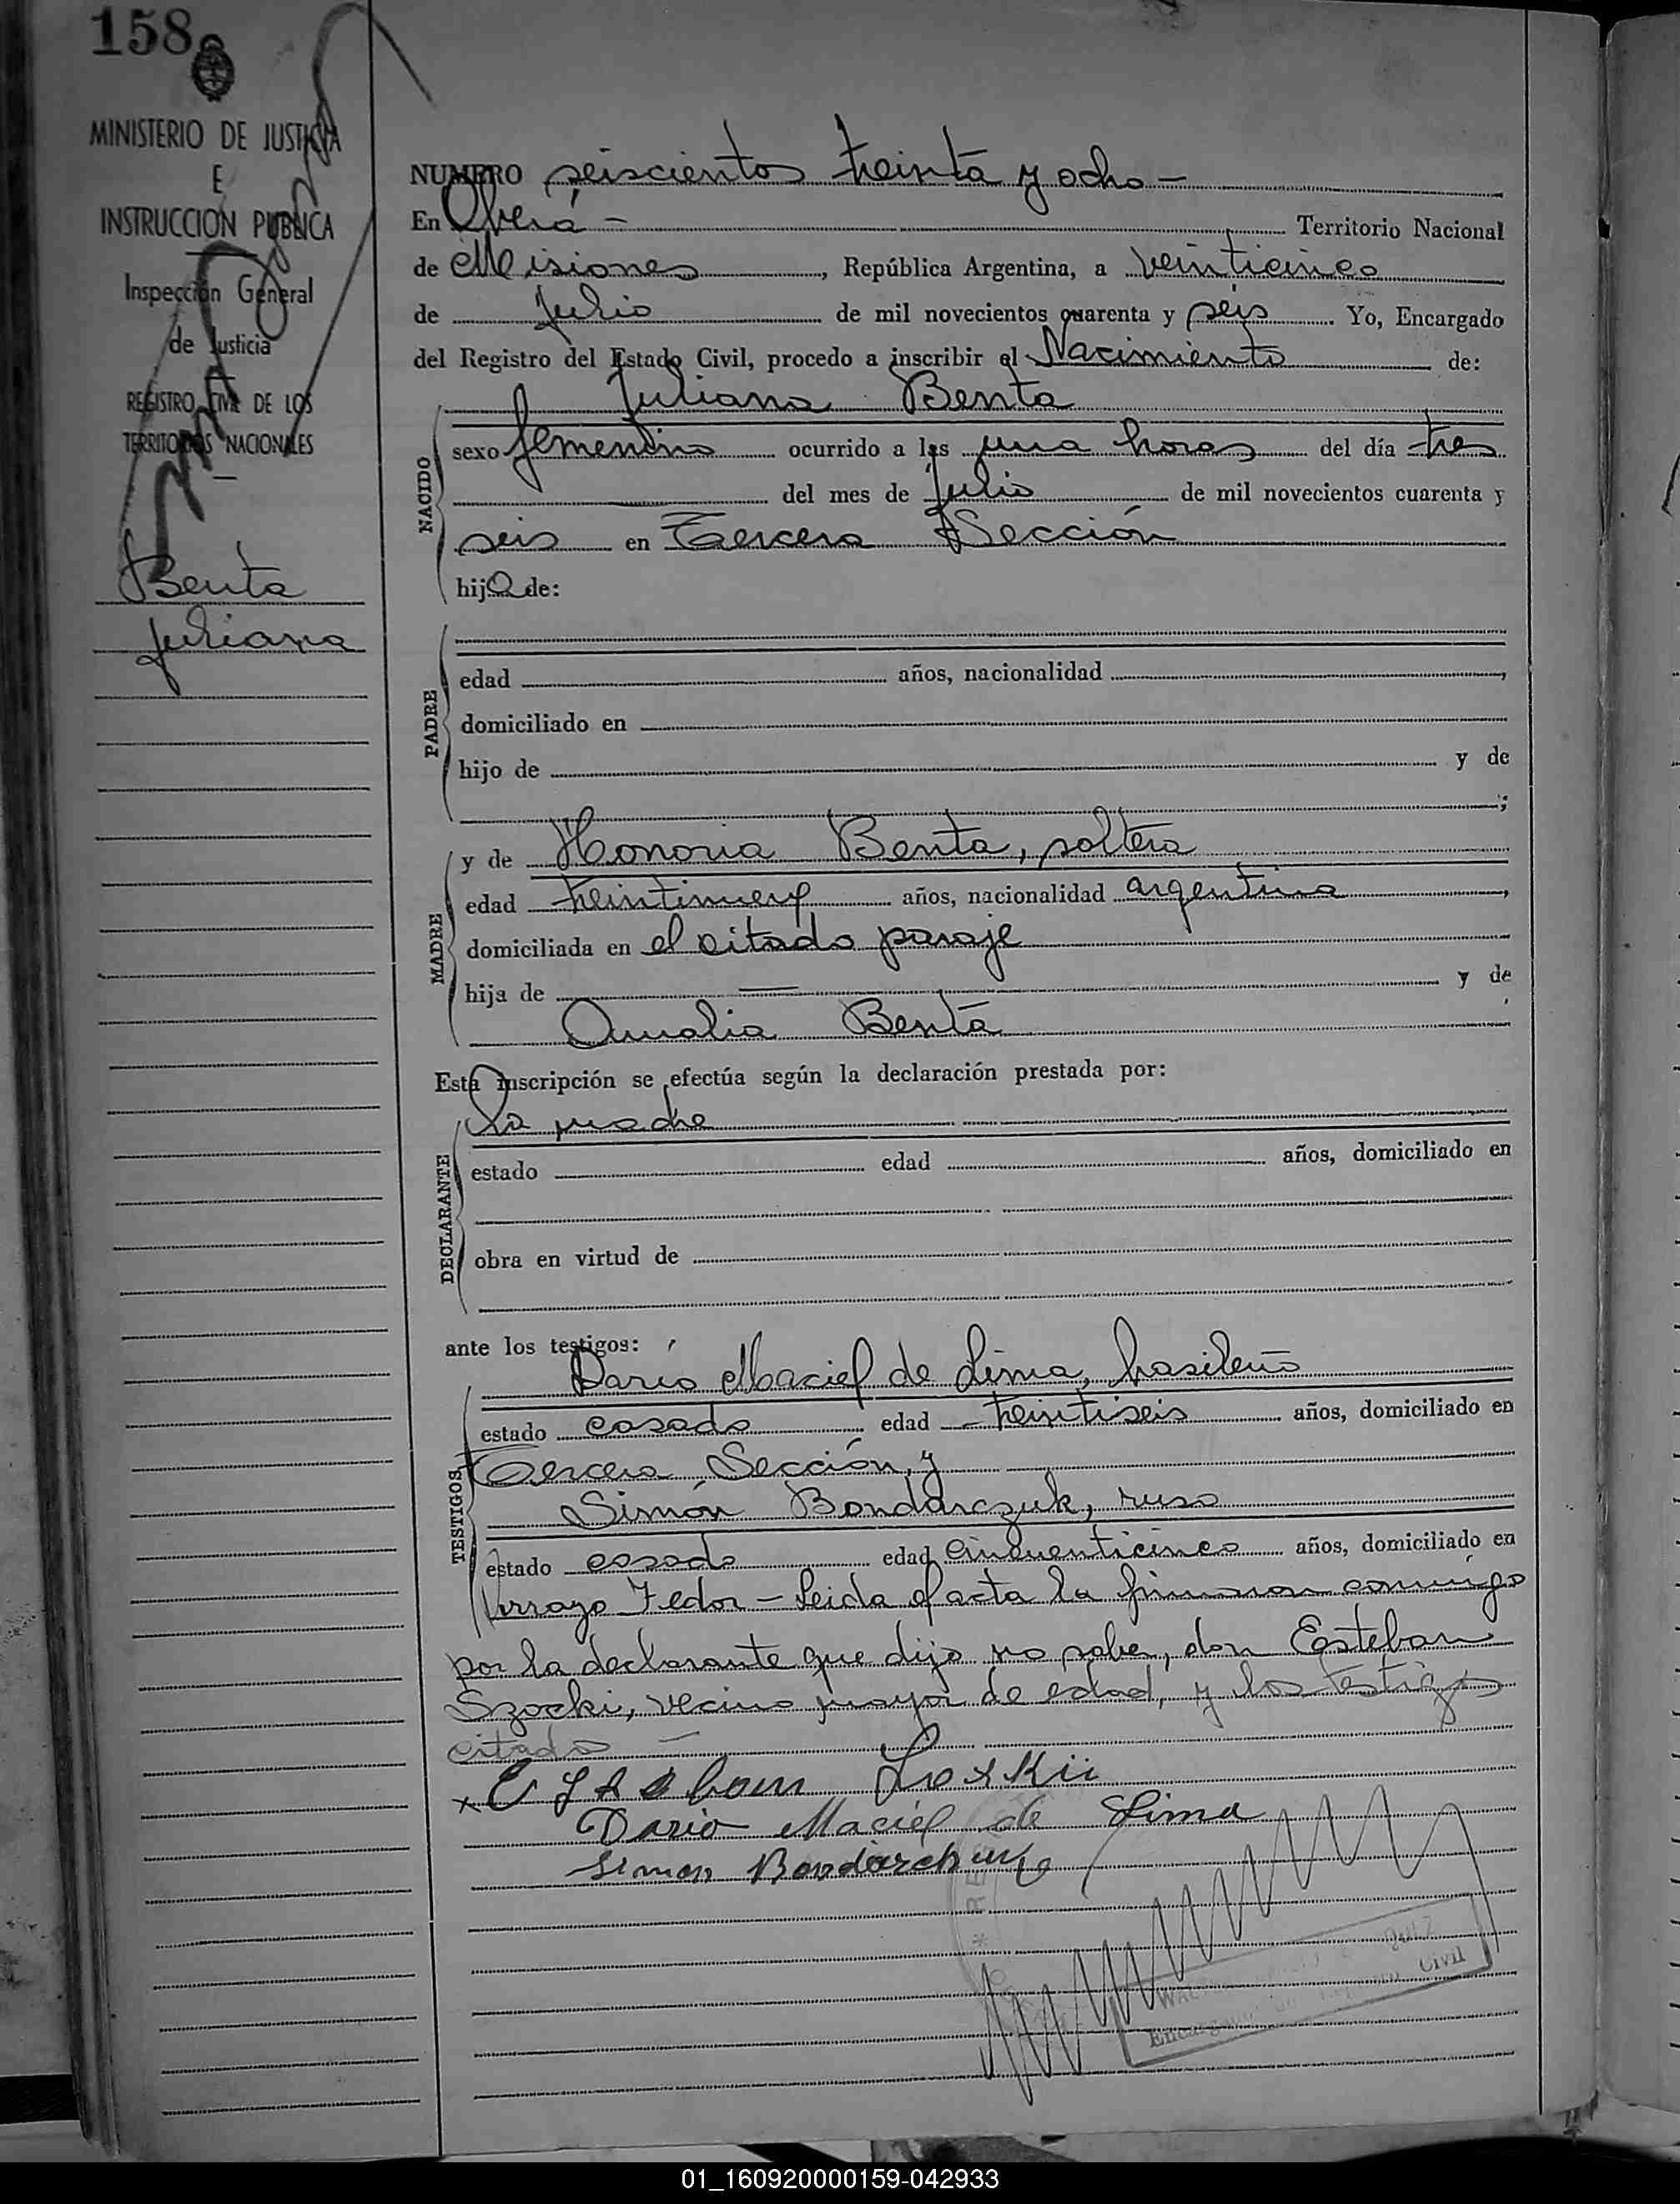 158
MINISTERIO DE JUSTICIA
E
INSTRUCCION PUBLICA
Inspección General
de Justicia
REGISTRO CIVIL DE LOS
TERRITORIOS NACIONALES
Benta
Juliana
NUMERO seiscientos treinta y ocho —
En Oberá — Territorio Nacional
de Misiones, República Argentina, a veinticinco
de Julio de mil novecientos cuarenta y seis. Yo, Encargado
del Registro del Estado Civil, procedo a inscribir el Nacimiento de:
Juliana Benta
NACIDO
sexo femenino ocurrido a las una horas del día tres
del mes de Julio de mil novecientos cuarenta y
seis en Tercera Sección
hija de:
PADRE
edad años, nacionalidad ,
domiciliado en
hijo de y de
;
MADRE
y de Honoria Benta, soltera
edad treintinueve años, nacionalidad argentina,
domiciliada en el citado paraje
hija de — y de
Amalia Benta
Esta inscripción se efectúa según la declaración prestada por:
DECLARANTE
la madre
estado edad años, domiciliado en
obra en virtud de
ante los testigos:
TESTIGOS
Darío Maciel de Lima, brasileño
estado casado edad treintiseis años, domiciliado en
Tercera Sección, y
Simón Bondarczuk, ruso
estado casado edad cincuenticinco años, domiciliado en
Arroyo Fedor — Leida el acta la firmaron conmigo
por la declarante que dijo no saber, don Esteban
Szocki, vecino mayor de edad, y los testigos
citados —
x Esteban
Dario Maciel de Lima
Simon Bondarchuk
Encargado del Registro Civil
01_160920000159-042933